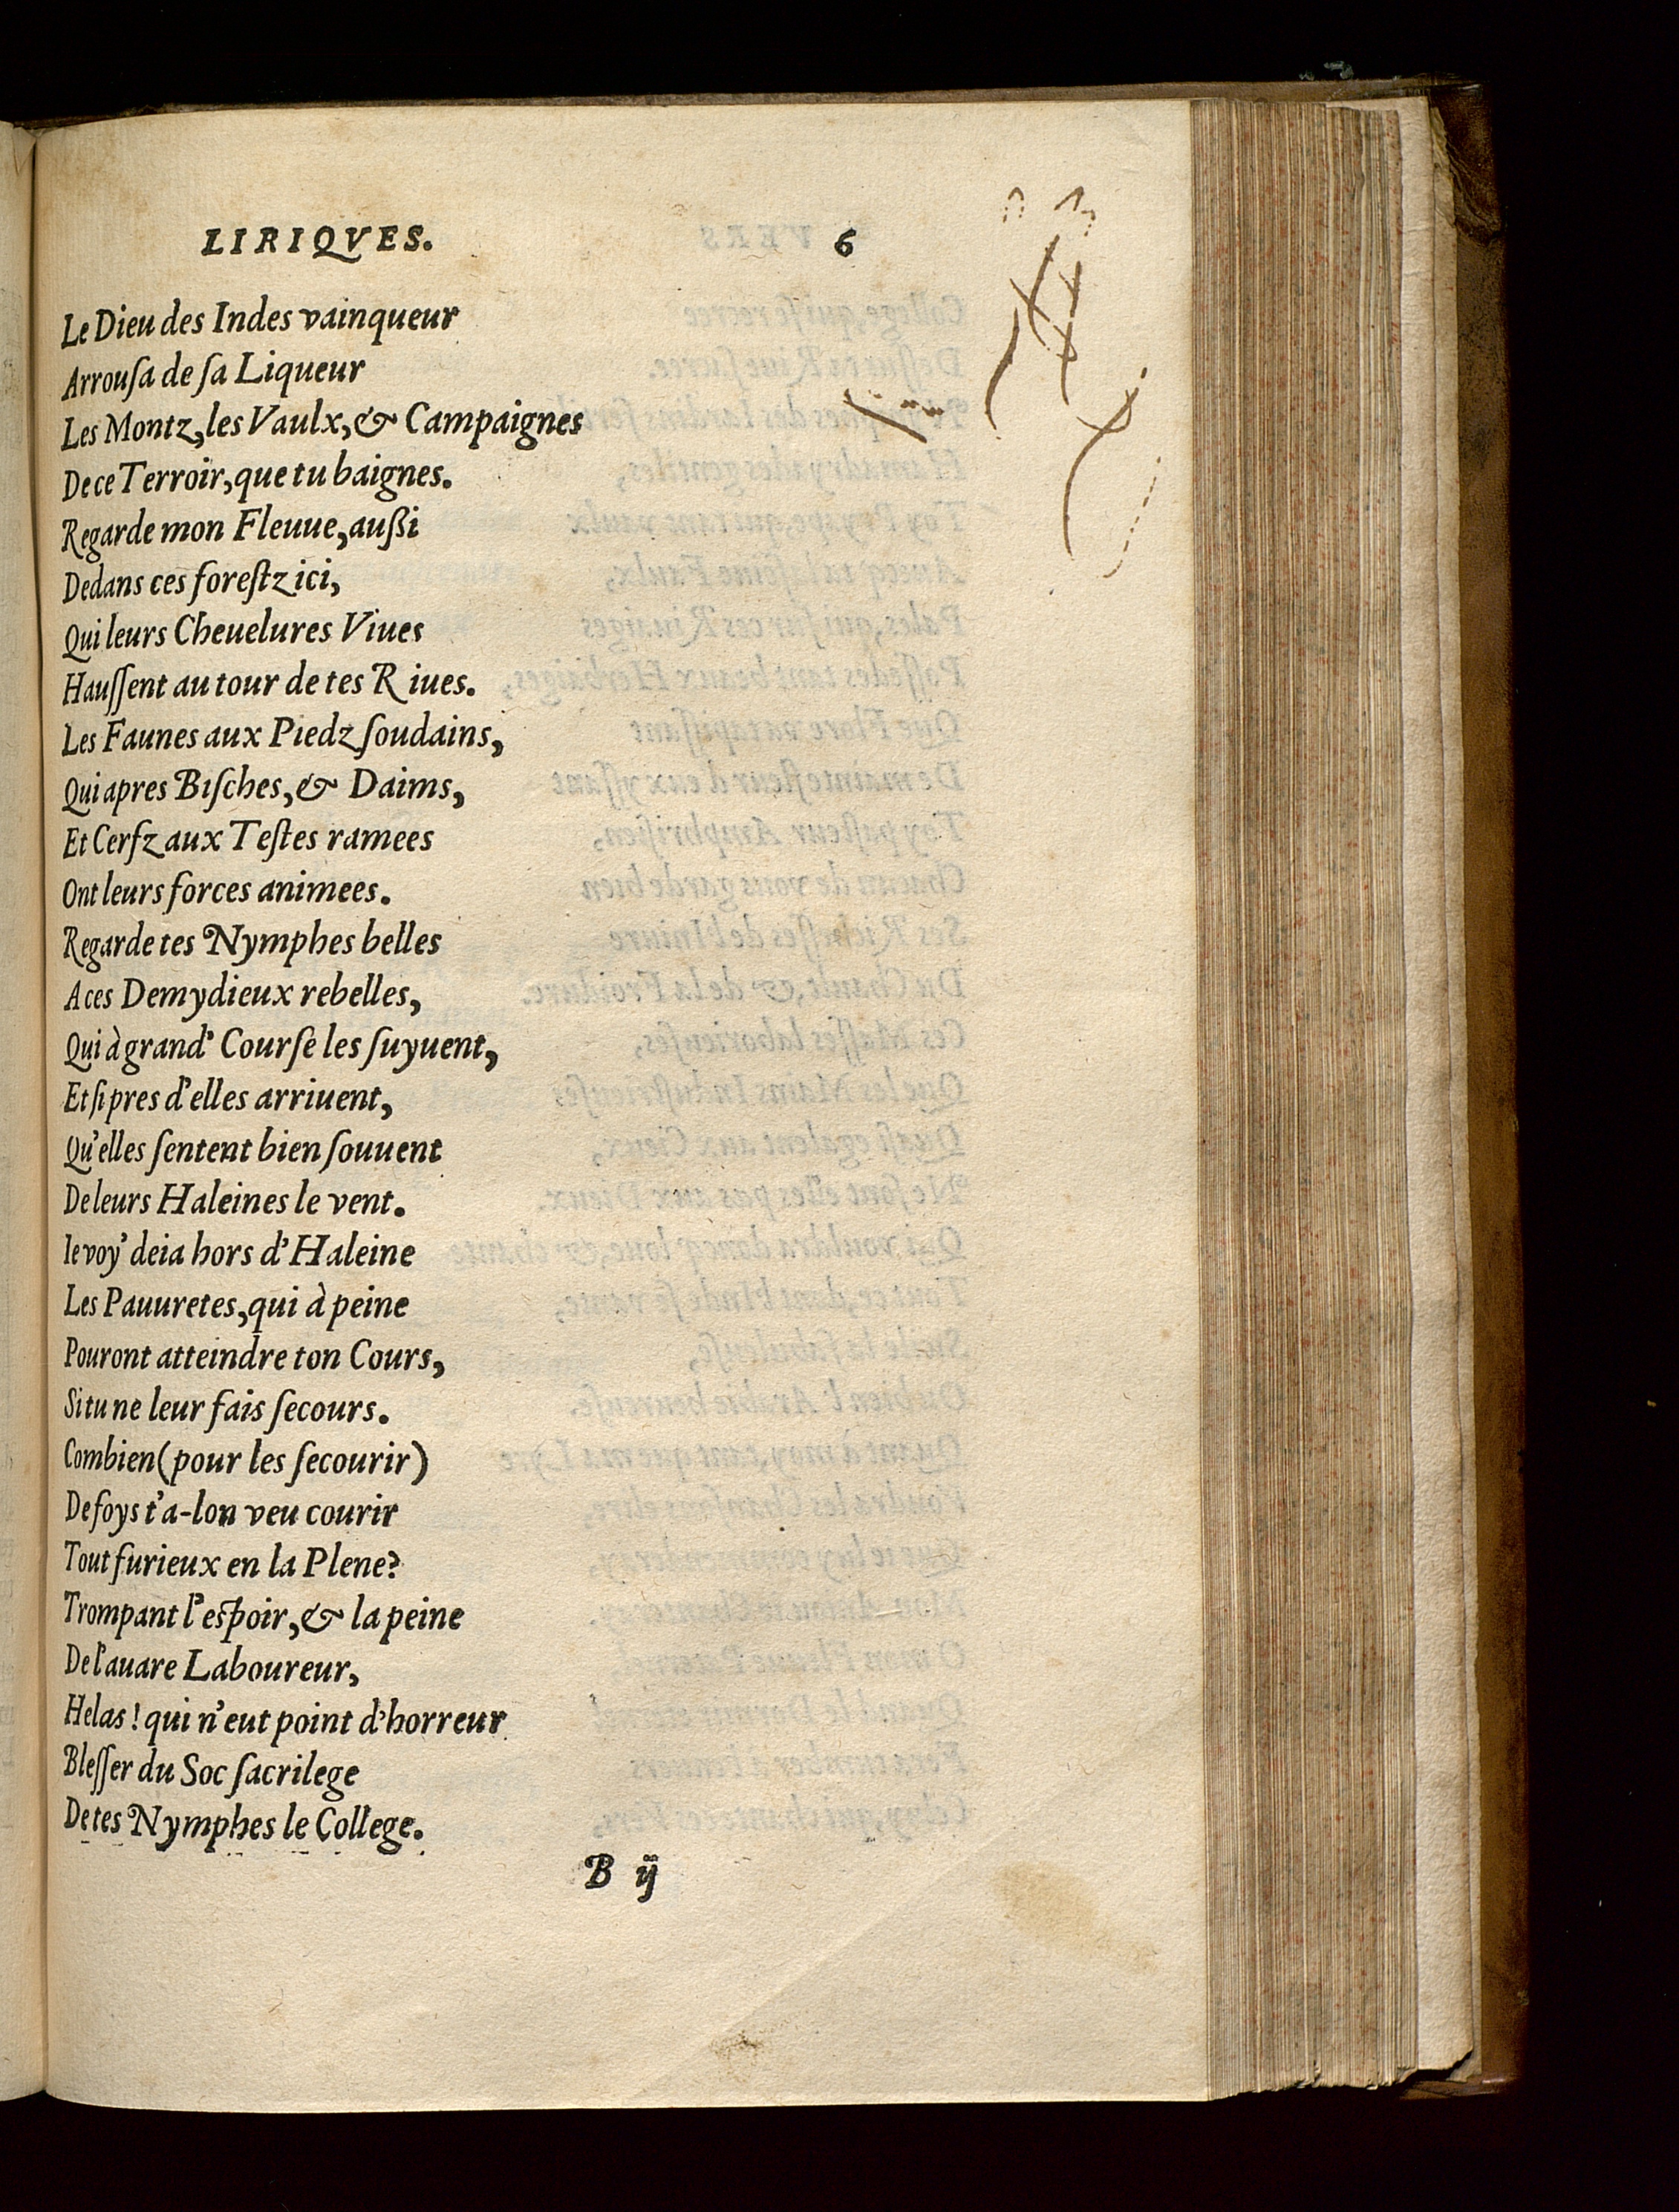 LIRIQVES. 6
Le Dieu des Indes vainqueur
Arrouſa de ſa Liqueur
Les Montz, les Vaulx, & Campaignes
De ce Terroir, que tu baignes.
Regarde mon Fleuue, außi
Dedans ces foreſtz ici,
Qui leurs Cheuelures Viues
Hauſſent au tour de tes Riues.
Les Faunes aux Piedz ſoudains,
Qui apres Biſches, & Daims,
Et Cerfz aux Teſtes ramees
Ont leurs forces animees.
Regarde tes Nymphes belles
A ces Demydieux rebelles,
Qui à grand' Courſe les ſuyuent,
Et ſi pres d'elles arriuent,
Qu'elles ſentent bien ſouuent
De leurs Haleines le vent.
Ie voy' deia hors d'Haleine
Les Pauuretes, qui à peine
Pouront atteindre ton Cours,
Si tu ne leur fais ſecours.
Combien (pour les ſecourir)
De foys t'a-lon veu courir
Tout furieux en la Plene?
Trompant l'eſpoir, & la peine
De l'auare Laboureur,
Helas! qui n'eut point d'horreur
Bleſſer du Soc ſacrilege
De tes Nymphes le College.
B ij